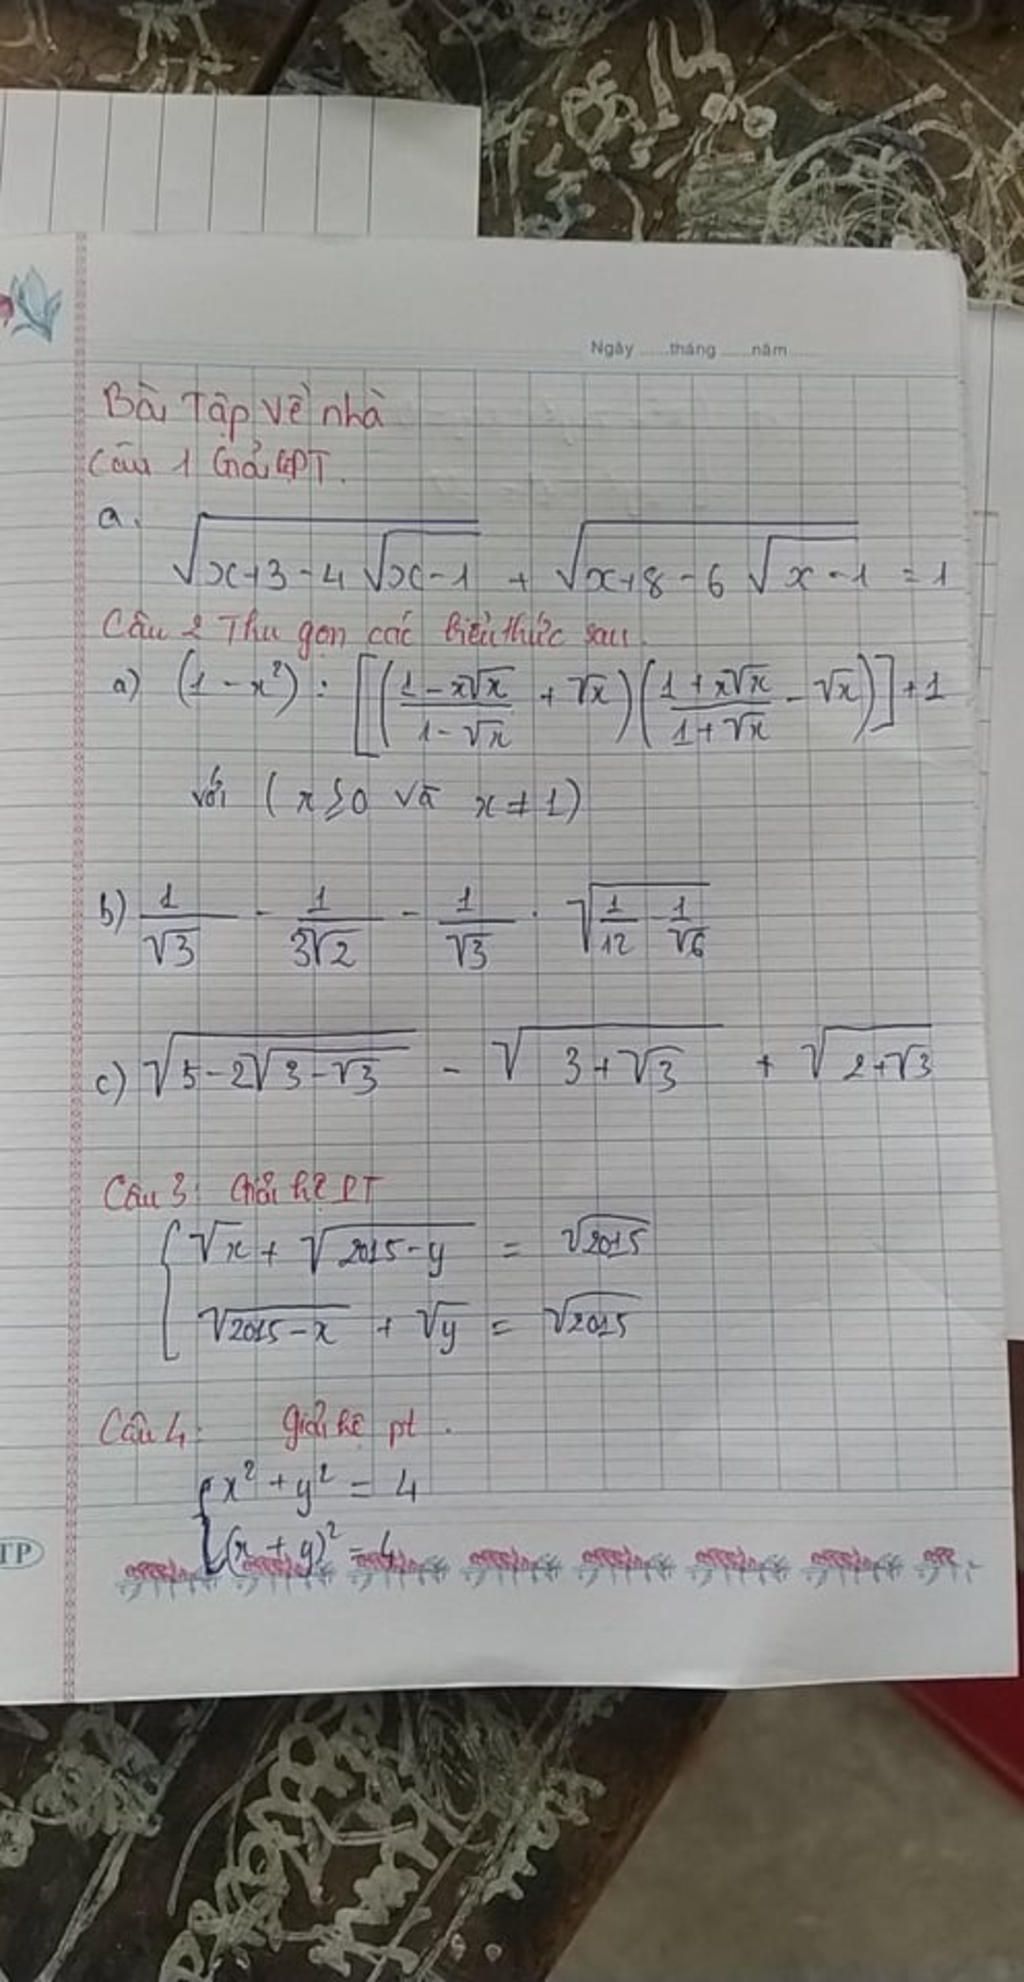 Ngày ......tháng ......năm ......
Bài Tập Về nhà
Câu 1 Giải PT.
a. √(x+3-4√(x-1)) + √(x+8-6√(x-1)) = 1
Câu 2 Thu gọn các biểu thức sau.
a) (1-x²) : [((1-x√x)/(1-√x) + √x)((1+x√x)/(1+√x) - √x)] + 1
với (x ≥ 0 và x ≠ 1)
b) 1/√3 - 1/(3√2) - 1/√3 . √(1/12 - 1/√6)
c) √(5-2√(3-√3)) - √(3+√3) + √(2+√3)
Câu 3: Giải hệ PT
{ √x + √(2015-y) = √2015
√(2015-x) + √y = √2015
Câu 4: Giải hệ pt.
{ x² + y² = 4
(x+y)² = 4
TP